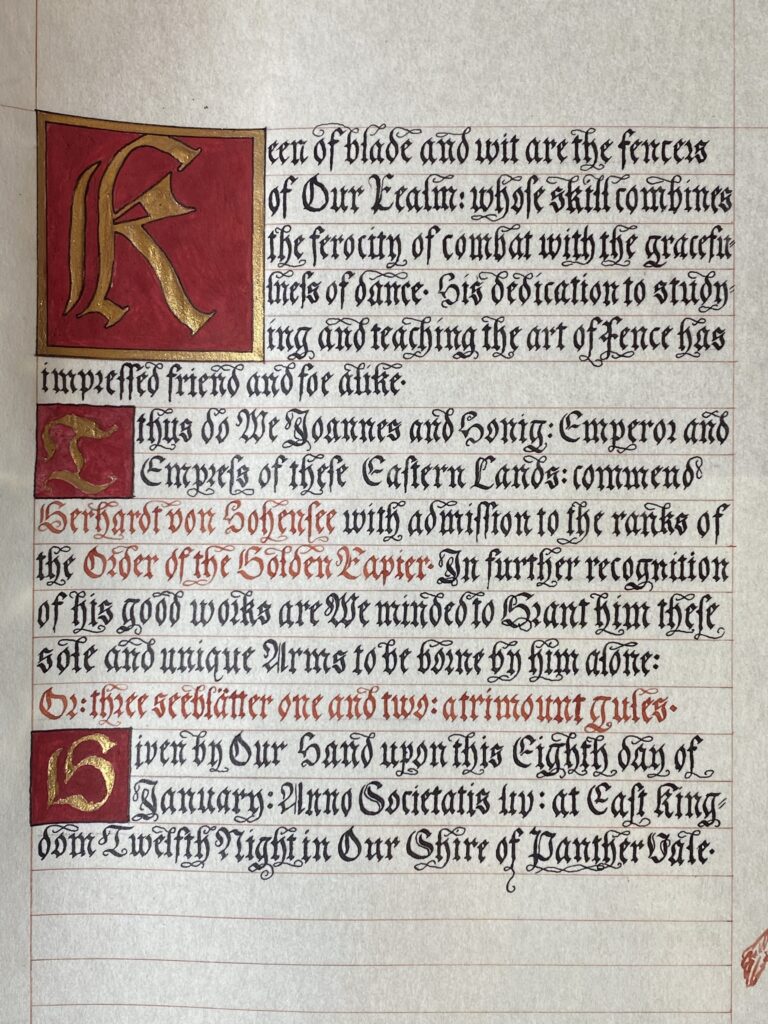 Keen of blade and wit are the fencers
of Our Realm: whose skill combines
the ferocity of combat with the gracefu-
lness of dance. His dedication to study-
ing and teaching the art of Fence has
impressed friend and foe alike.
I thus do We Joannes and Honig: Emperor and
Empress of these Eastern Lands: commend
Gerhardt von Hohensee with admission to the ranks of
the Order of the Golden Rapier. In further recognition
of his good works are We minded to Grant him these
sole and unique Arms to be borne by him alone:
Or: three seeblätter one and two: a trimount gules.
Given by Our Hand upon this Eighth day of
January: Anno Societatis liv: at East King-
dom Twelfth Night in Our Shire of Panther Vale.